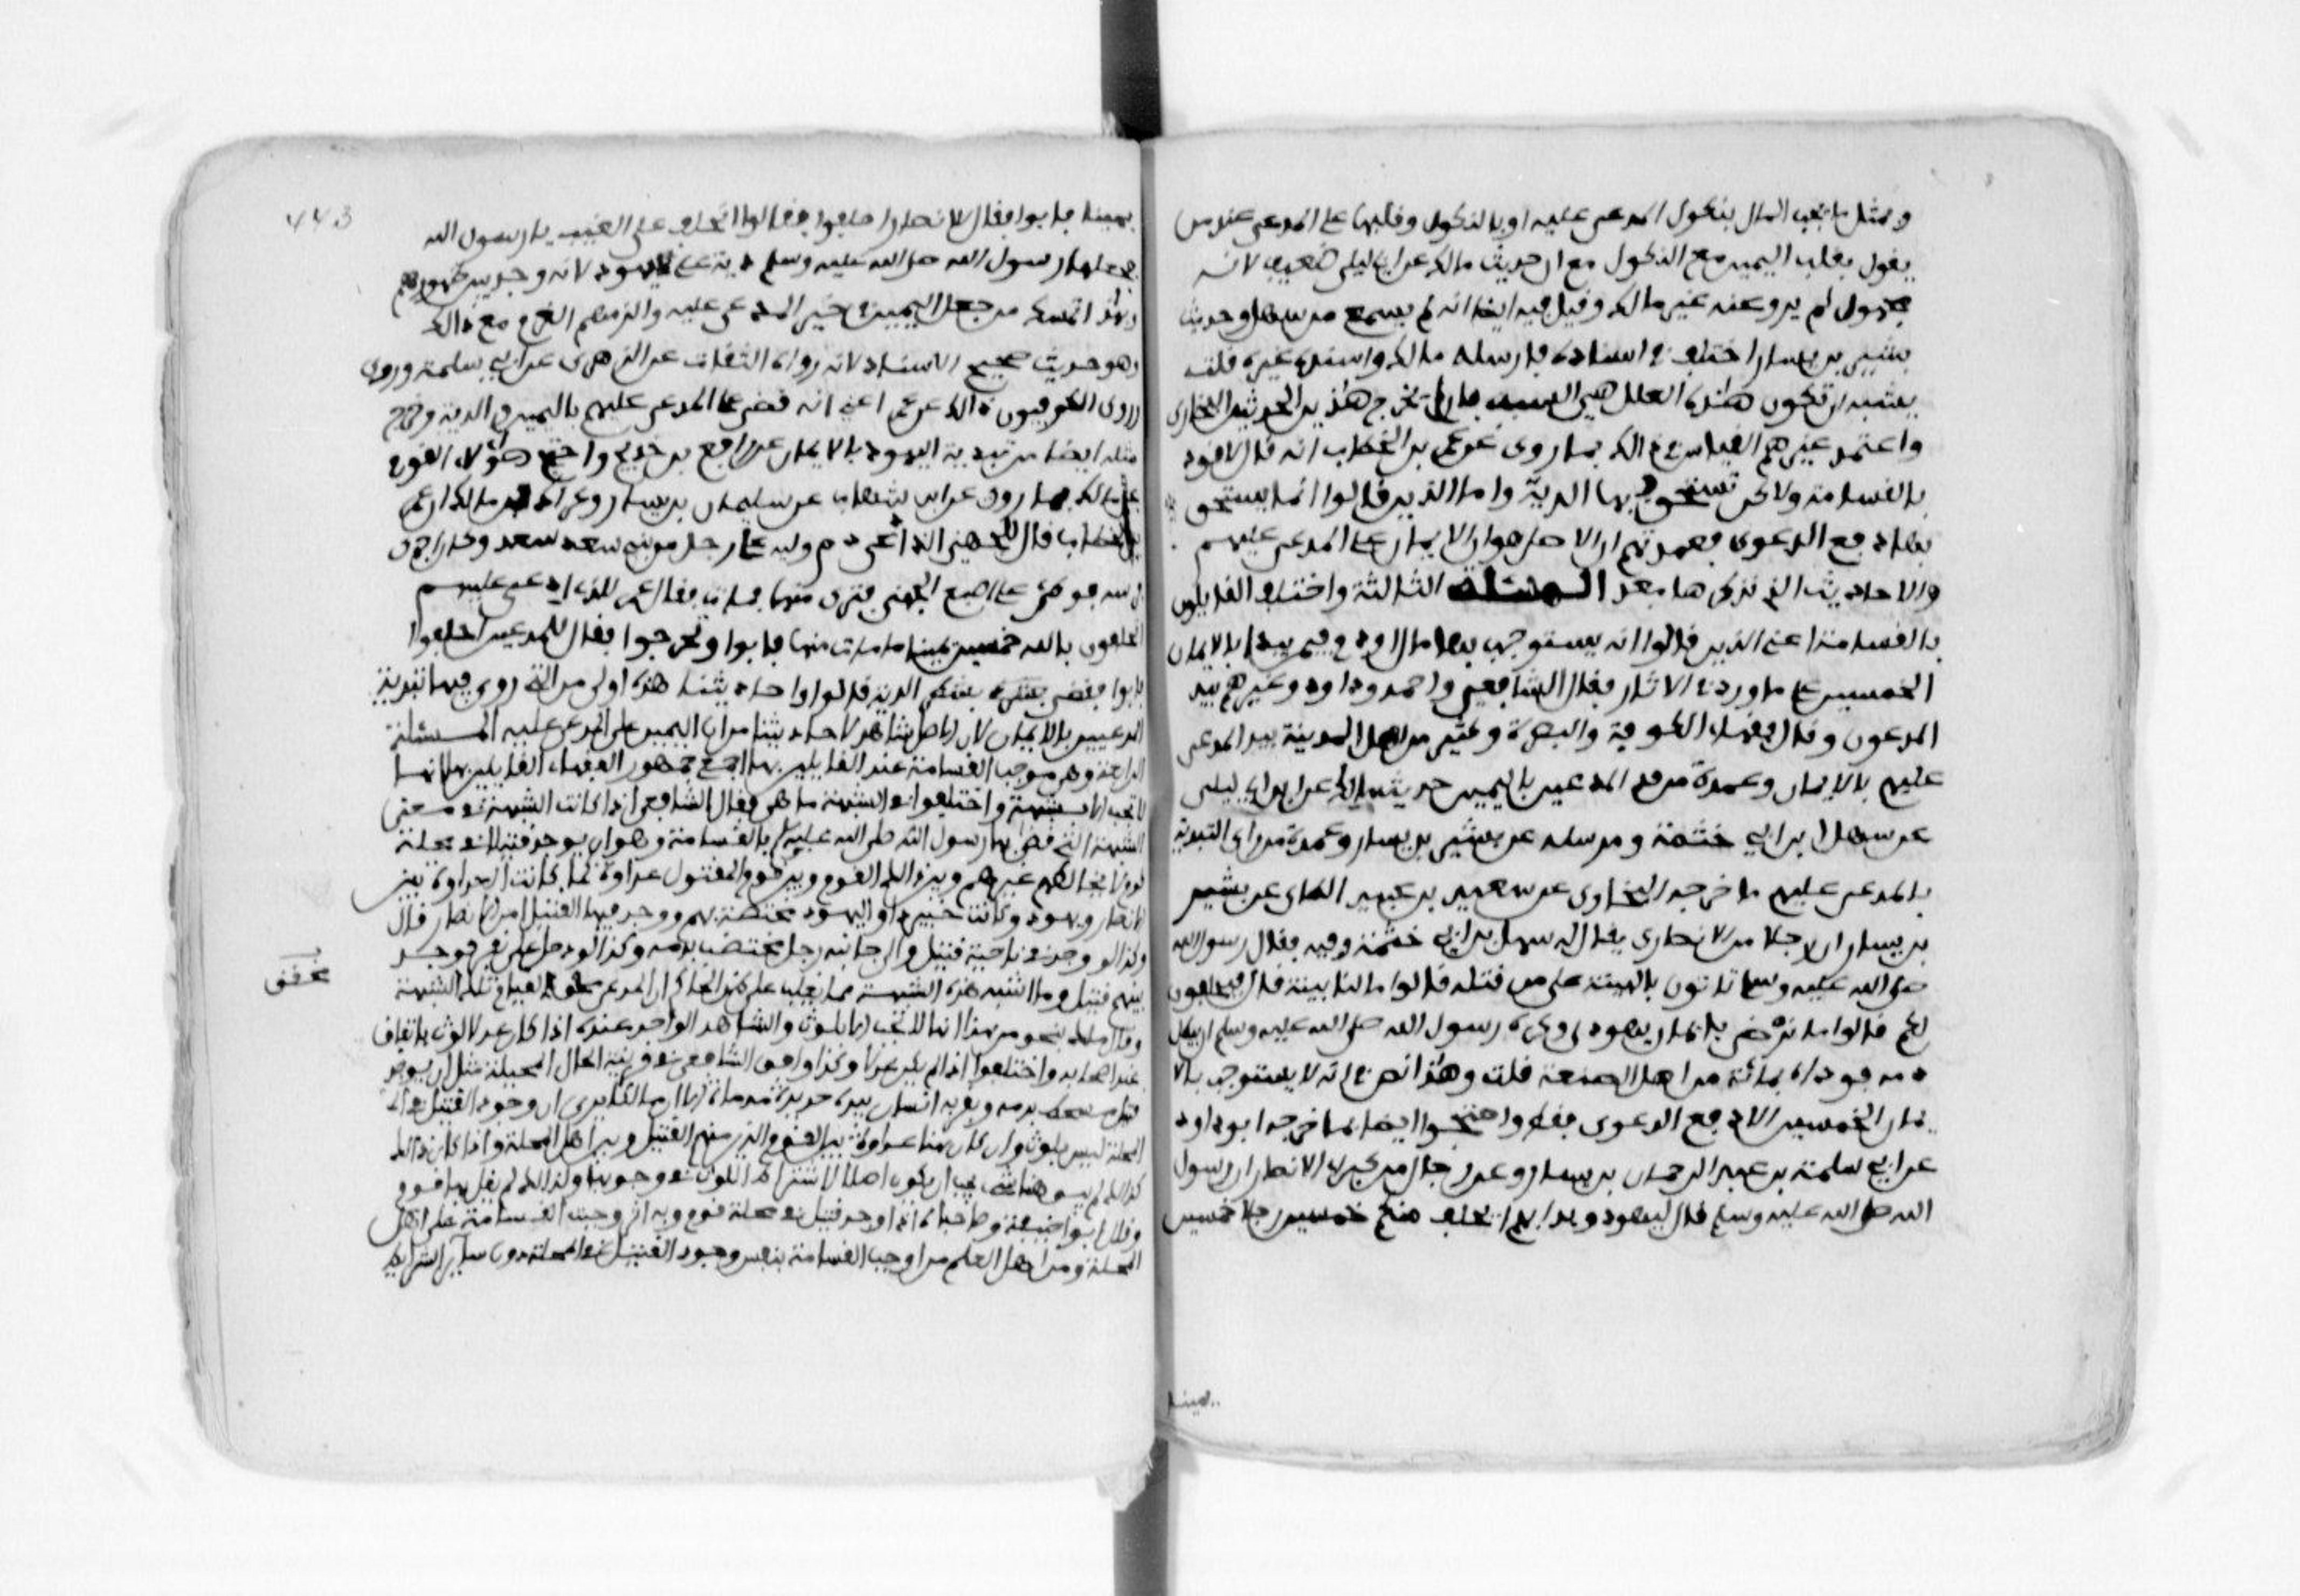 ومثل ما يجب المال بنكول المدعى عليه او بالنكول وقلبها على المدعي عند من
يقول بقلب اليمين مع النكول مع ان حديث مالك عن ابي ليلى ضعيف لانه
مجهول لم يرو عنه غير مالك وقيل فيه ايضا انه لم يسمع من سهل وحديث
بشير بن يسار اختلف في اسناده فارسله مالك واسنده غيره قلت
يشبه ان تكون هذه العلل هي السبب في ان لم يخرج هذين الحديثين البخاري
واعتمد عندهم القياس في ذالك بما روى عن عمر بن الخطاب انه قال لا قود
بالقسامة ولاكن تستحق بها الدية واما الذين قالوا انما يستحق
بها دفع الدعوى فعمدتهم ان الاصل هو ان الايمان على المدعى عليهم
والاحاديث التي نذكرها بعد المسئلة الثالثة واختلف القايلون
بالقسامة اعني الذين قالوا انه يستوجب بها مال او دم فيمن يبدا بالايمان
الخمسين على ما ورد في الاثار فقال الشافعي واحمد وداود وغيرهم يبدا
المدعون وقال فقهاء الكوفة والبصرة وكثير من اهل المدينة يبدا المدعى
عليهم بالايمان وعمدة من بدا المدعين باليمين حديث مالك عن ابن ابي ليلى
عن سهل بن ابي حثمة ومرسله عن بشير بن يسار وعمدة من راى التبدية
بالمدعى عليهم ما خرجه البخاري عن سعيد بن عبيد الطاي عن بشير
بن يسار ان رجلا من الانصاري يقال له سهل بن ابي حثمة وفيه فقال رسول الله
صلى الله عليه وسلم تاتون بالبينة على من قتله قالوا ما لنا بينة قال فيحلفون
لكم قالوا ما نرضى بايمان يهود وكره رسول الله صلى الله عليه وسلم ان يبطل
دمه فوداه بمائة من اهل الصدقة قلت وهذا نص في انه لا يستوجب بالا
يمان الخمسين الا دفع الدعوى فقط واحتجوا ايضا بما خرجه ابو داود
عن ابي سلمة بن عبد الرحمان بن يسار وعن رجال من كبراء الانصار ان رسول
الله صلى الله عليه وسلم قال ليهود وبدا بهم ايحلف منكم خمسون رجلا خمسين
يمينا
443
يمينا فابوا فقال للانصار احلفوا فقالوا انحلف على الغيب يا رسول الله
فجعلها رسول الله صلى الله عليه وسلم دية على يهود لانه وجد بين ظهورهم
وبهذا تمسك من جعل اليمين في حيز المدعى عليه والزمهم الغرم مع ذالك
وهو حديث صحيح الاسناد لانه رواه الثقات عن الزهري عن ابي سلمة وروى
وروى الكوفيون ذالك عن عمر اعني انه قضى على المدعى عليهم باليمين والدية وخرج
مثله ايضا من تبدية اليهود بالايمان عن رافع بن خديج واحتج هؤلاء القوم
على مالك بما روى عن ابن شهاب عن سليمان بن يسار وعراك بن مالك ان عمر
بن الخطاب قال للجهني الذي ادعى دم وليه على رجل من بني سعد وكان اجرى
فرسه فوطئ على اصبع الجهني فنزى منها فمات فقال عمر للذي ادعى عليهم
اتحلفون بالله خمسين يمينا ما مات منها فابوا وتحرجوا فقال للمدعين احلفوا
فابوا فقضى عليهم بشطر الدية قالوا واحاديثنا هذه اولى من التي روي فيها تبدية
المدعيين بالايمان لان الاصل شاهد لاحاديثنا من ان اليمين على المدعى عليه المسئلة
الرابعة وهي موجب القسامة عند القايلين بها اجمع جمهور الفقهاء القايلين بها انها
لا تجب الا بشبهة واختلفوا في الشبهة ما هي فقال الشافعي اذا كانت الشبهة في معنى
الشبهة التي قضى بها رسول الله صلى الله عليه بالقسامة وهو ان يوجد قتيل في محلة
قوم لا يخالطهم غيرهم وبين اولئك القوم وبين قوم المقتول عداوة كما كانت العداوة بين
الانصار ويهود وكانت خيبر دار اليهود مختصة بهم ووجد فيها القتيل من الانصار قال
وكذالك لو وجد في ناحية قتيل والى جانبه رجل مختضب بدمه وكذالك لو دخل على نفر فوجد
بينهم قتيل وما اشبه هذه الشبهة مما يغلب على ظن الحاكم ان المدعي محق لقيام تلك الشبهة
وقال مالك بنحو من هذا انها لا تجب الا بلوث والشاهد الواحد عنده اذا كان عدلا لوث باتفاق
عند اصحابه واختلفوا اذا لم يكن عدلا وكذا وافق الشافعي في قرينة الحال المخيلة مثل ان يوجد
قتيل متشحط بدمه وبقربه انسان بيده حديدة مدماة الا ان مالكا يرى ان وجود القتيل في
المحلة ليس بلوث وان كان هنا عداوة بين القوم الذين منهم القتيل وبين اهل المحلة واذا كان ذالك
كذالك لم يبق هنا شيء يجب ان يكون اصلا لاشتراك اللوث في وجوبها ولذالك لم يقل بها قوم
وقال ابو حنيفة وصاحباه اذا وجد قتيل في محلة قوم وبه اثر وجبت القسامة على اهل
المحلة ومن اهل العلم من اوجب القسامة بنفس وجود القتيل في المحلة دون ساير الشرايط
محقق